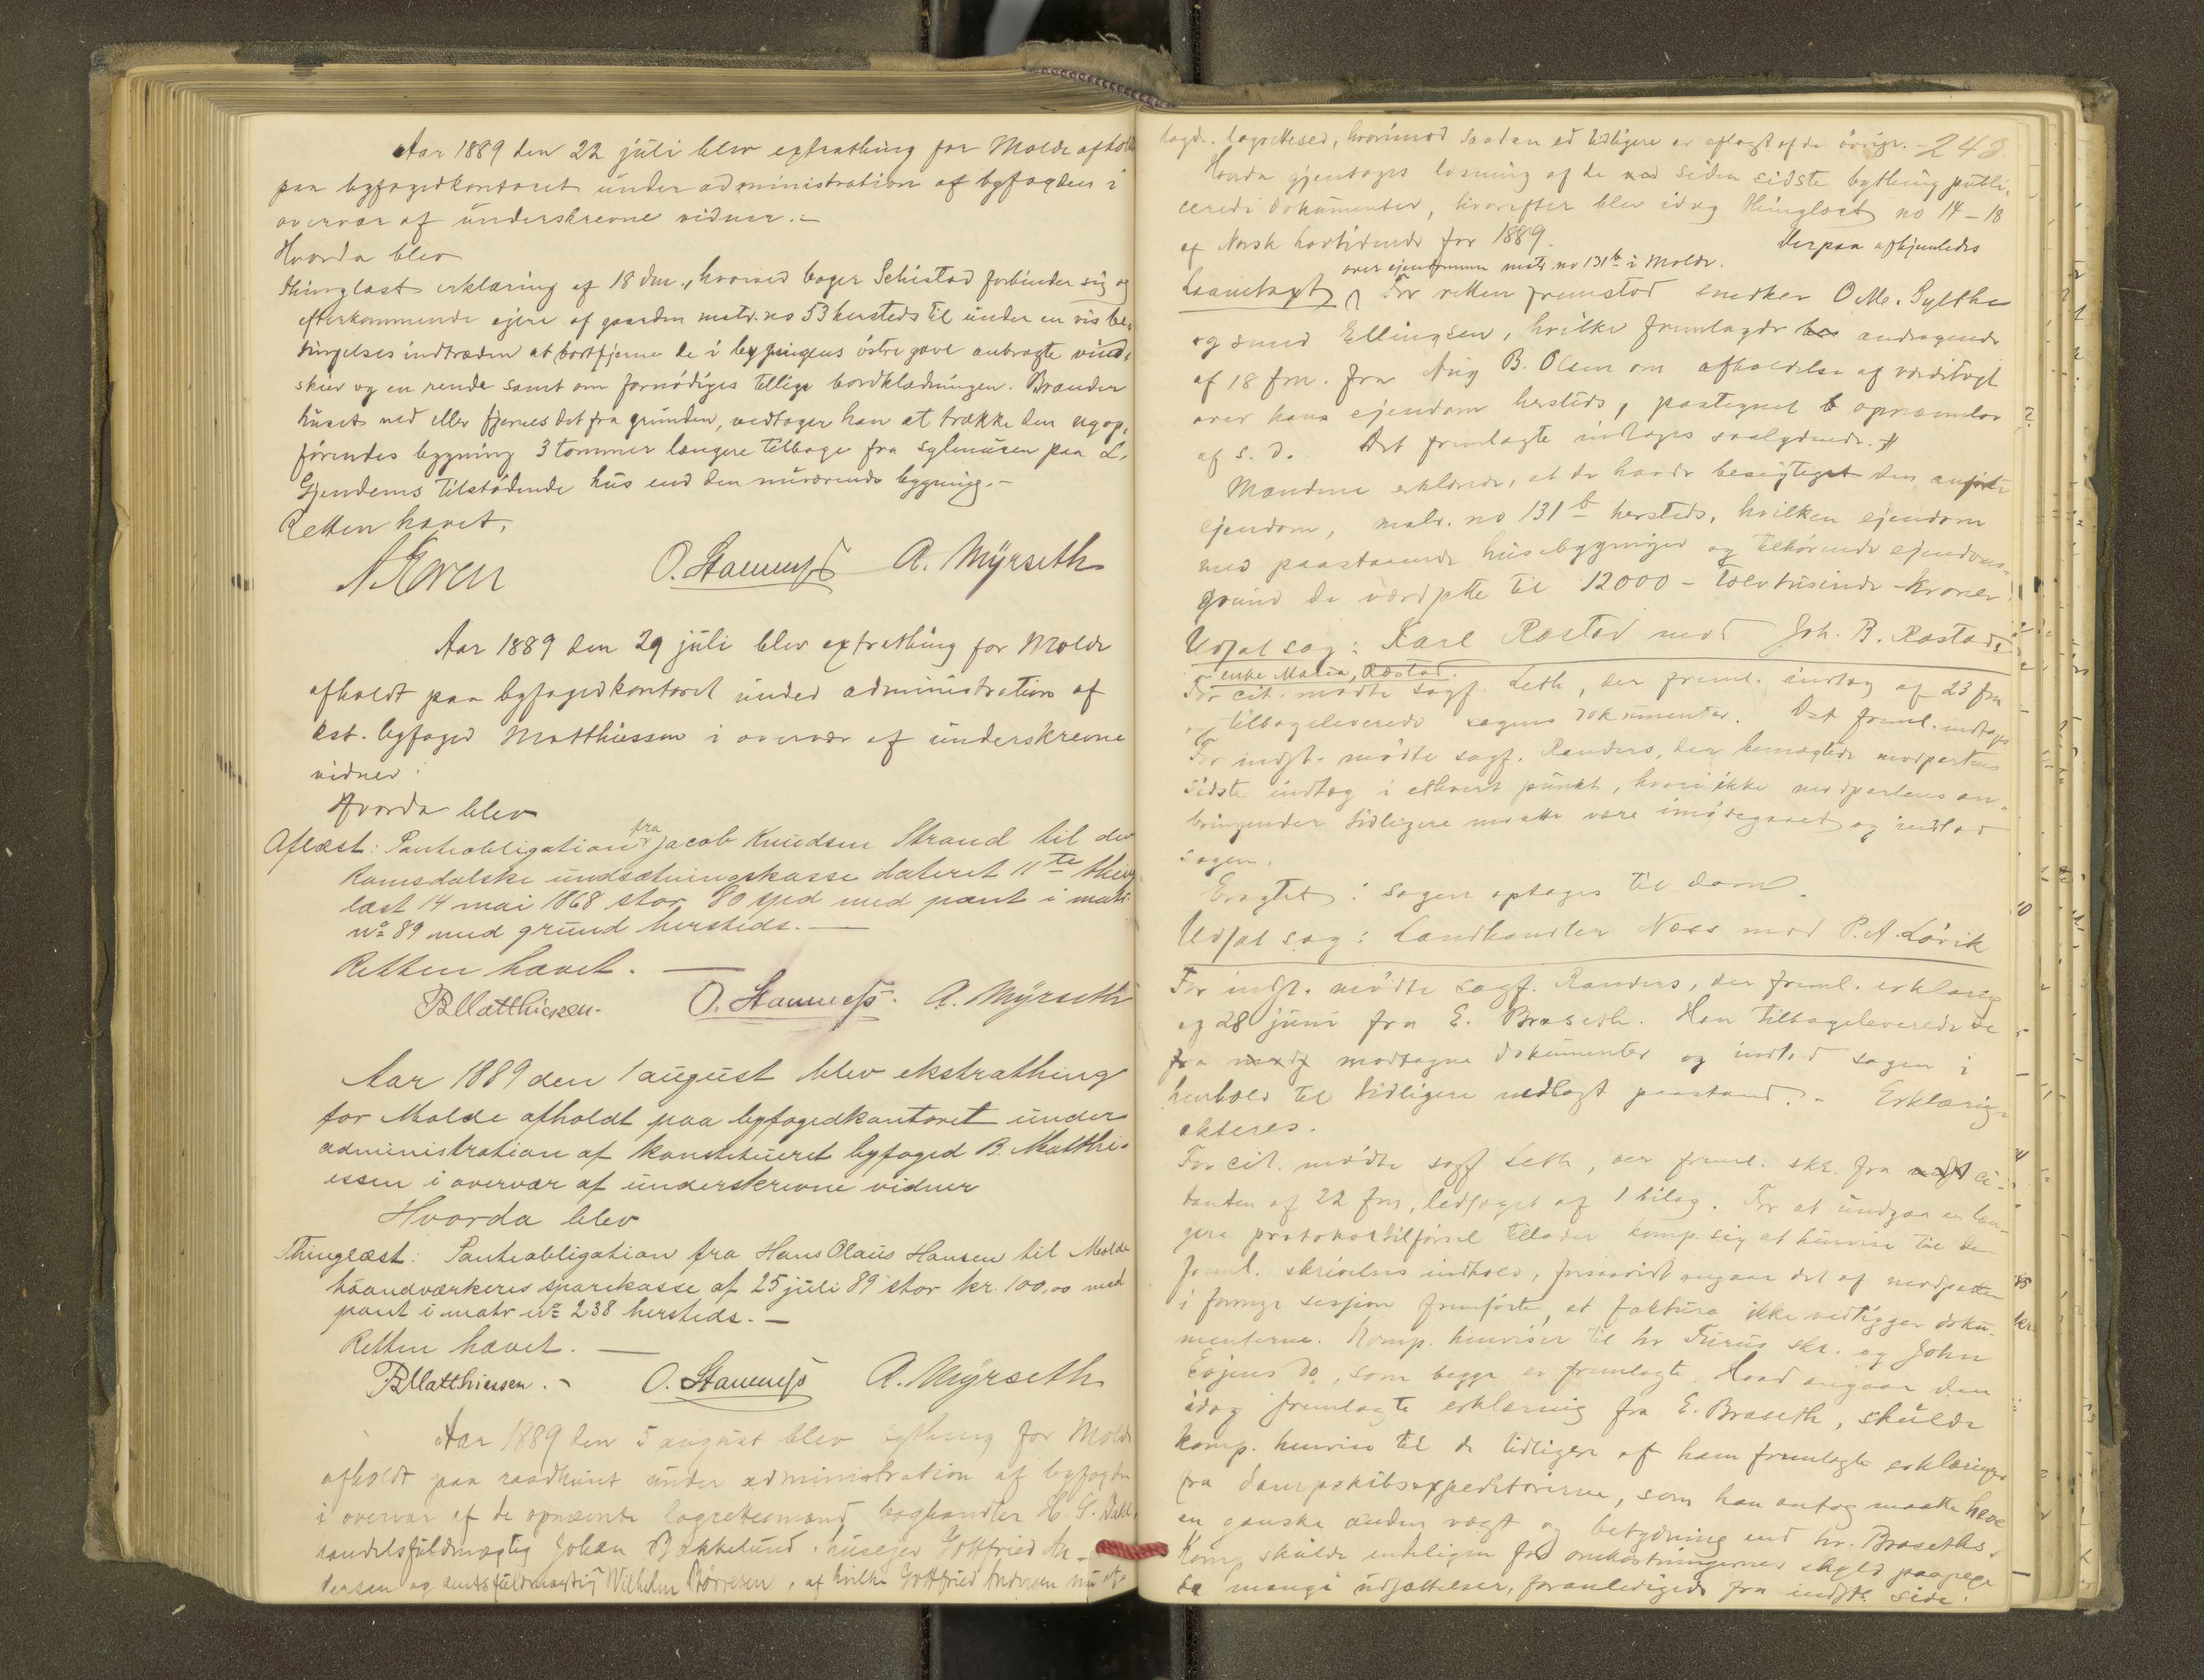 Aar 1889 den 22 juli blev extrathing for Molde afholdt
paa byfogedkontoret under administration af byfogden i
overvær af underskrevne vidner.-
Hvorda blev
Thinglæst erklæring af 18 dm., hvorved bager Schistad forbinder sig og
efterkommende ejere af gaarden matr. no 53 hersteds til under en vis be-
tingelses indtræden at bortfjerne de i bygningens østre gavl anbragte vind-
skier og en rende samt om fornødiges tillige bordklædningen. Brænder
huset ned eller fjernes det fra grunden, vedtager han at trække den nyop-
førendes bygning 3 tommer længere tilbage fra sylmuren paa L.
Gjendems tilstødende hus end den nuværende bygning.-
Retten hævet.
O. Stamness A. Myrseth
Aar 1889 den 29 juli blev extrathing for Molde
afholdt paa byfogedkontoret under administration af
kst. byfoged Matthiessen i overvær af underskrevne
vidner:
Hvorda blev
Aflæst: Panteobligation fra Jacob Knudsen Strand til den
Romsdalske undsætningskasse dateret 11te thing-
læst 14 mai 1868 stor 80 spd med pant i matr.
no 89 med grund hersteds.-
Retten hævet.-
B Matthiessen. O. Stamness. A. Myrseth
Aar 1889 den 1 august blev ekstrathing
for Molde afholdt paa byfogedkontoret under
administration af konstitueret byfoged B. Matthi-
essen i overvær af underskrevne vidner
Hvorda blev
Thinglæst: Panteobligation fra Hans Olaus Hansen til Molde
haandværkeres sparekasse af 25 juli 89 stor kr. 100,00 med
pant i matr no 238 hersteds.-
Retten hævet.-
B Matthiessen.- O. Stamness A. Myrseth
Aar 1889 den 5 august blev bything for Molde
afholdt paa raadhuset under administration af byfogden
i overvær af de opnævnte lagrettesmænd boghandler H. G. Dahl,
handelsfuldmægtig Johan Bakkelund, huseier Gottfried An-
dersen og amtsfuldmægtig Vilhelm Børresen, af hvilke Gottfried Andersen nu af-
lagde lagrettesed, hvorimod saadan ed tidligere er aflagt af de øvrige.- 248.
Hvorda gjentages læsning af de siden sidste bything publi-
cerede dokumenter, hvorefter blev idag thinglæst no 14-18
af Norsk lovtidende for 1889. Derpaa afhjemledes
over ejendommen matr. no 131b i Molde.
Laanetaxt For retten fremstod snedker O. M. Sylthe
og smed Ellingsen, hvilke fremlagde andragende
af 18 fm. fra Aug B. Olsen om afholdelse af værditaxt
over hans ejendom hersteds, paategnet opnævnelse
af s. d. Det fremlagte indtages saalydende.
Mændene erklærede, at de havde besigtiget den anførte
ejendom, matr. no 131b hersteds, hvilken ejendom
med paastaaende husebygninger og tilhørende ejendoms-
grund de værdsatte til 12000 - tolvtusinde kroner.
Udsat sag: Karl Røstad mod Joh. B. Røstads
enke Malea Røstad.
For cit. mødte sagf. Leth, der freml. indlæg af 23 fm
tilbageleverede sagens dokumenter. Det freml. indtages
For indst. mødte sagf. Randers, der benægtede modpartens
sidste indlæg i ethvert punkt, hvori ikke modpartens an-
bringender tidligere maatte være imødegaaet og indlod
sagen.
Eragtet: sagen optages til dom.
Udsat sag: Landhandler Næss mod P. A. Løvik
For indst. mødte sagf. Randers, der freml. erklæring
af 28 juni fra E. Braseth. Han tilbageleverede de
fra modtagne dokumenter og indlod sagen i
henhold til tidligere nedlagt paastand.- Erklæringen
akteres.
For cit. mødte sagf Leth, der freml. skr. fra ci-
tanten af 22 fm, ledsaget af 1 bilag. For at undgaa en læn-
gere protokoltilførsel tillader komp. sig at henvise til den
freml. skrivelses indhold, forsaavidt angaar det af modparten
i forrige session fremførte, at faktura ikke vedligger doku-
menterne. Komp. henviser til hr Furus skr. og John
Eojens do, som begge er fremlagte. Hvad angaar den
idag fremlagte erklæring fra E. Braseth, skulde
komp. henvise til de tidligere af ham fremlagte erklæringer
fra dampskibsexpeditørerne, som han antog maatte have
en ganske anden vægt og betydning end hr. Braseths.
Komp skulde endeligen for omkostningernes skyld paapege
de mange udsættelser, foranledigede fra indst. side.